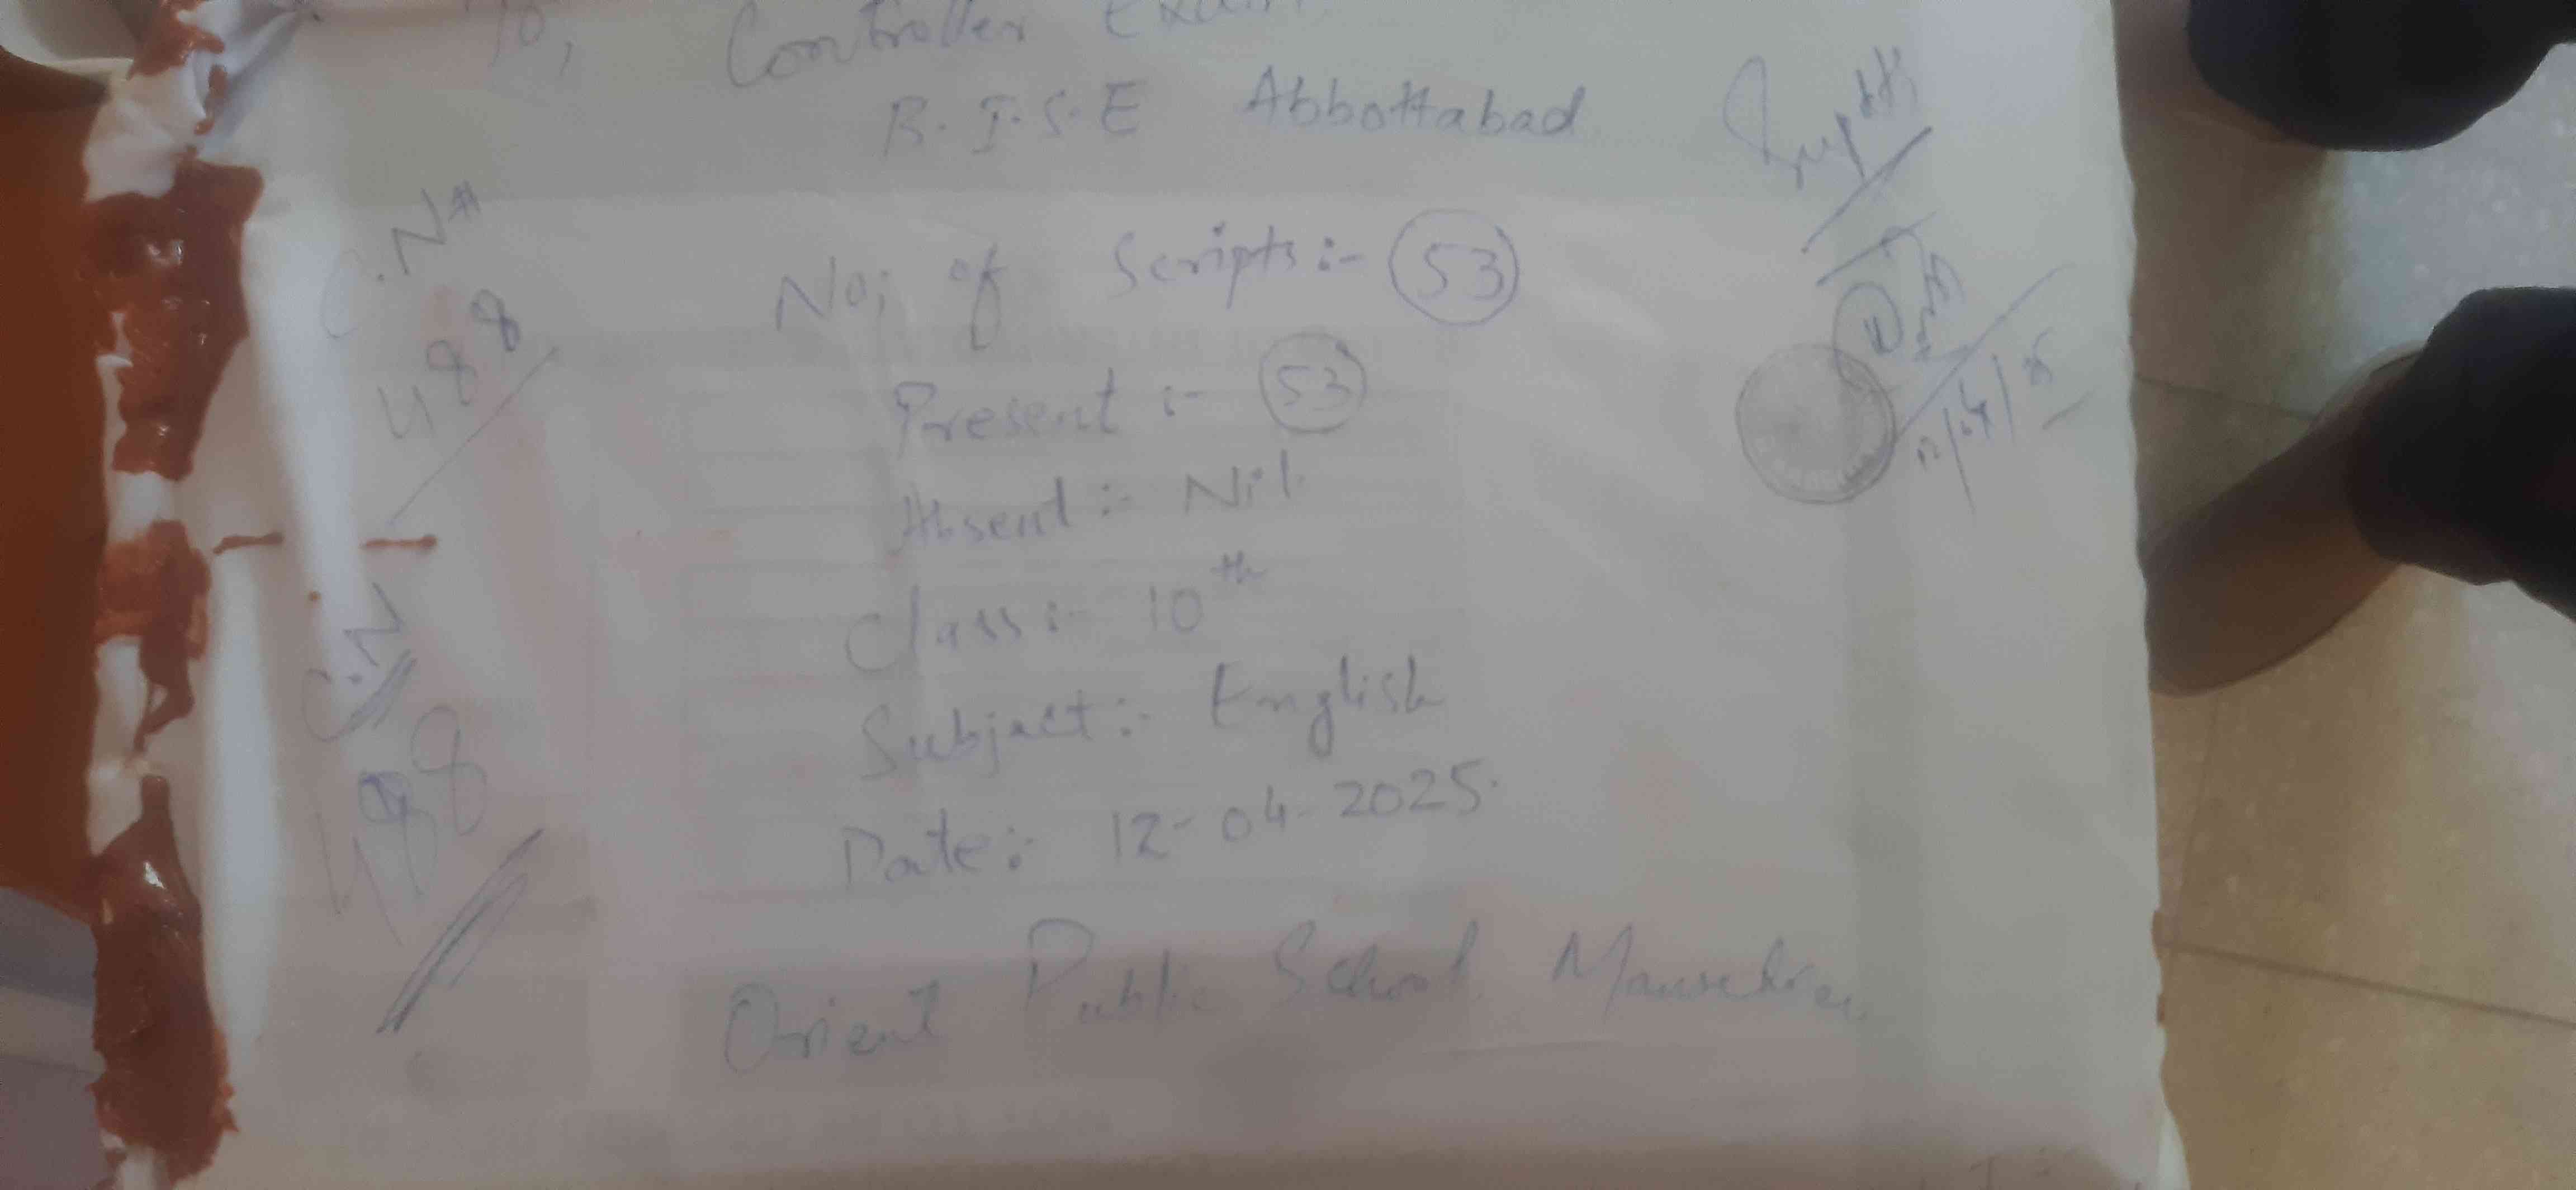 To, Controller Exam
B.I.S.E Abbottabad
C.N#
488
No; of Scripts:- 53
Present :- 53
Absent :- Nil
Class :- 10th
C.N
488
Subject:- English
Date:- 12-04-2025.
Orient Public School Mansehra
Supdtt
12/04/25